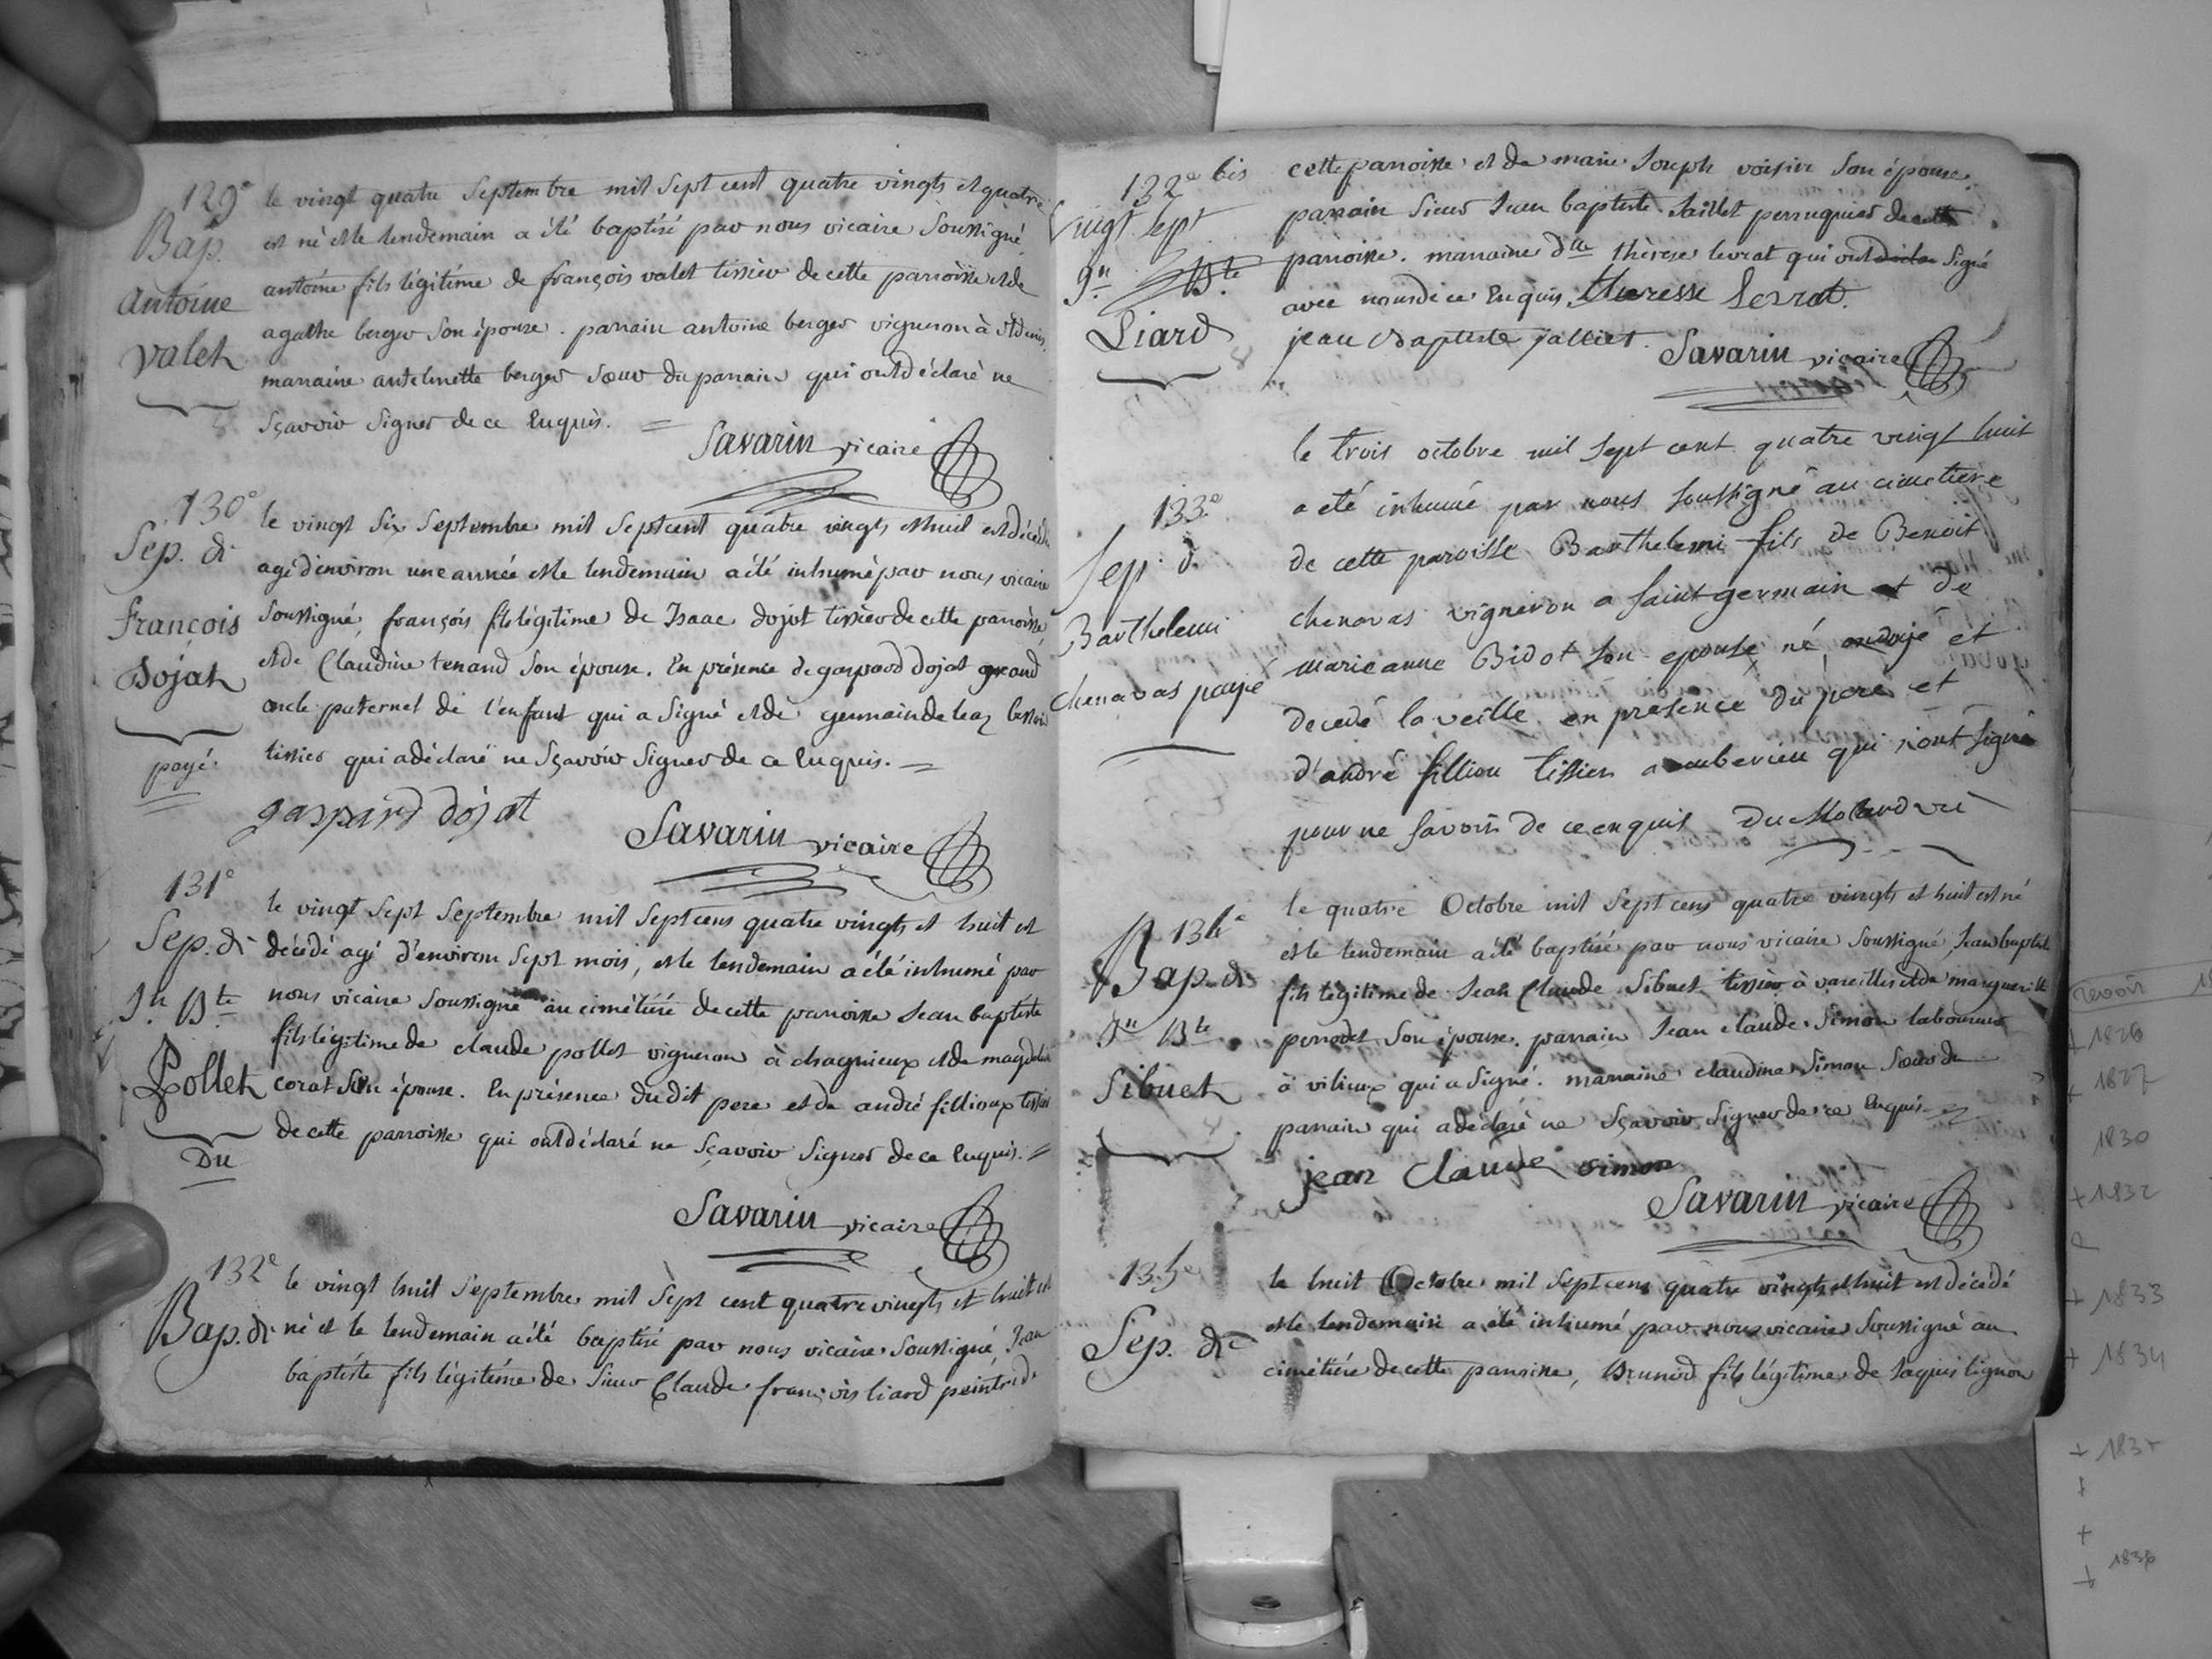 129e
Bap.
antoine
valet
le vingt quatre Septembre mil Sept cent quatre vingts et quatre
est né et le lendemain a été baptisé par nous vicaire Soussigné
antoine fils légitime de françois valet tissier de cette parroisse et de
agathe berger Son épouse. parrain antoine berger vigneron à St denis.
marraine antelmette berger Sœur du parrain qui ont déclaré ne
Sçavoir Signer de ce Enquis. =
Savarin vicaire
130e
Sep. de
françois
Dojat
payé.
le vingt Six Septembre mil Sept cent quatre vingts et huit est décédé
agé d'environ une année et le lendemain a été inhumé par nous vicaire
Soussigné, françois fils légitime de Isaac dojat tissier de cette parroisse
et de Claudine tenand Son épouse. En présence de gaspard dojat grand
oncle paternel de l'enfant qui a Signé et de germain
tissier qui a déclaré ne Sçavoir Signer de ce Enquis. =
gaspard dojat
Savarin vicaire
131e
Sep. de
Jn Bte
Pollet
Du
le vingt Sept Septembre mil Sept cens quatre vingts et huit est
décédé agé d'environ Sept mois, et le lendemain a été inhumé par
nous vicaire Soussigné au cimétiére de cette parroisse Jean baptiste
fils légitime de claude pollet vigneron à chagnieux et de magdelaine
corat Son épouse. En présence du dit pere et de andré fillioux tissier
de cette parroisse qui ont déclaré ne Sçavoir Signer de ce Enquis. =
Savarin vicaire
132e
Bap. de
le vingt huit Septembre mil Sept cent quatre vingts et huit est
né et le lendemain a été baptisé par nous vicaire Soussigné, Jean
baptiste fils légitime de Sieur Claude françois liard peintre de
132e bis
vingt sept
Jn Bte
Liard
cette parroisse et de marie Joseph voisin Son épouse.
parrain Sieur Jean baptiste Jaillet perruquier de cette
parroisse. marraine dlle thérese levrat qui ont Signé
avec nous de ce Enquis. theresse Levrat.
jean Baptiste jalliet.
Savarin vicaire
133e
Sep. d.
Barthelemi
chenavas payé
le trois octobre mil Sept cent quatre vingt huit
a eté inhumé par nous soussigné au cimetiere
de cette paroisse Barthelemi fils de Benoit
chenavas vigneron a saint germain et de
marieanne Bidot son epouse né, ondoyé et
decedé la veille en presence du pere et
d'andré fillion tissier a amberieu qui n'ont signé
pour ne savoir de ce enquis Du Molard vic
134e
Bap. de
Jn Bte
Sibuet
le quatre Octobre mil Sept cens quatre vingts et huit est né
et le lendemain a été baptisé par nous vicaire Soussigné, Jean baptiste
fils légitime de Jean Claude Sibuet tissier à vareilles et de marguerite
perrodet Son épouse. parrain Jean claude Simon laboureur
à vilieux qui a Signé. marraine claudine Simon Sœur de
parrain qui a déclaré ne Sçavoir Signer de ce Enquis
jean Claude simon
Savarin vicaire
135e
Sep. de
le huit Octobre mil Sept cens quatre vingts et huit est décédé
et le lendemain a été inhumé par nous vicaire Soussigné au
cimétiére de cette parroisse, Brunod fils légitime de Jaques lignon
revoir
+ 1826
+ 1827
1830
+ 1832
+ 1833
+ 1834
+ 1835
+
+
+ 1836